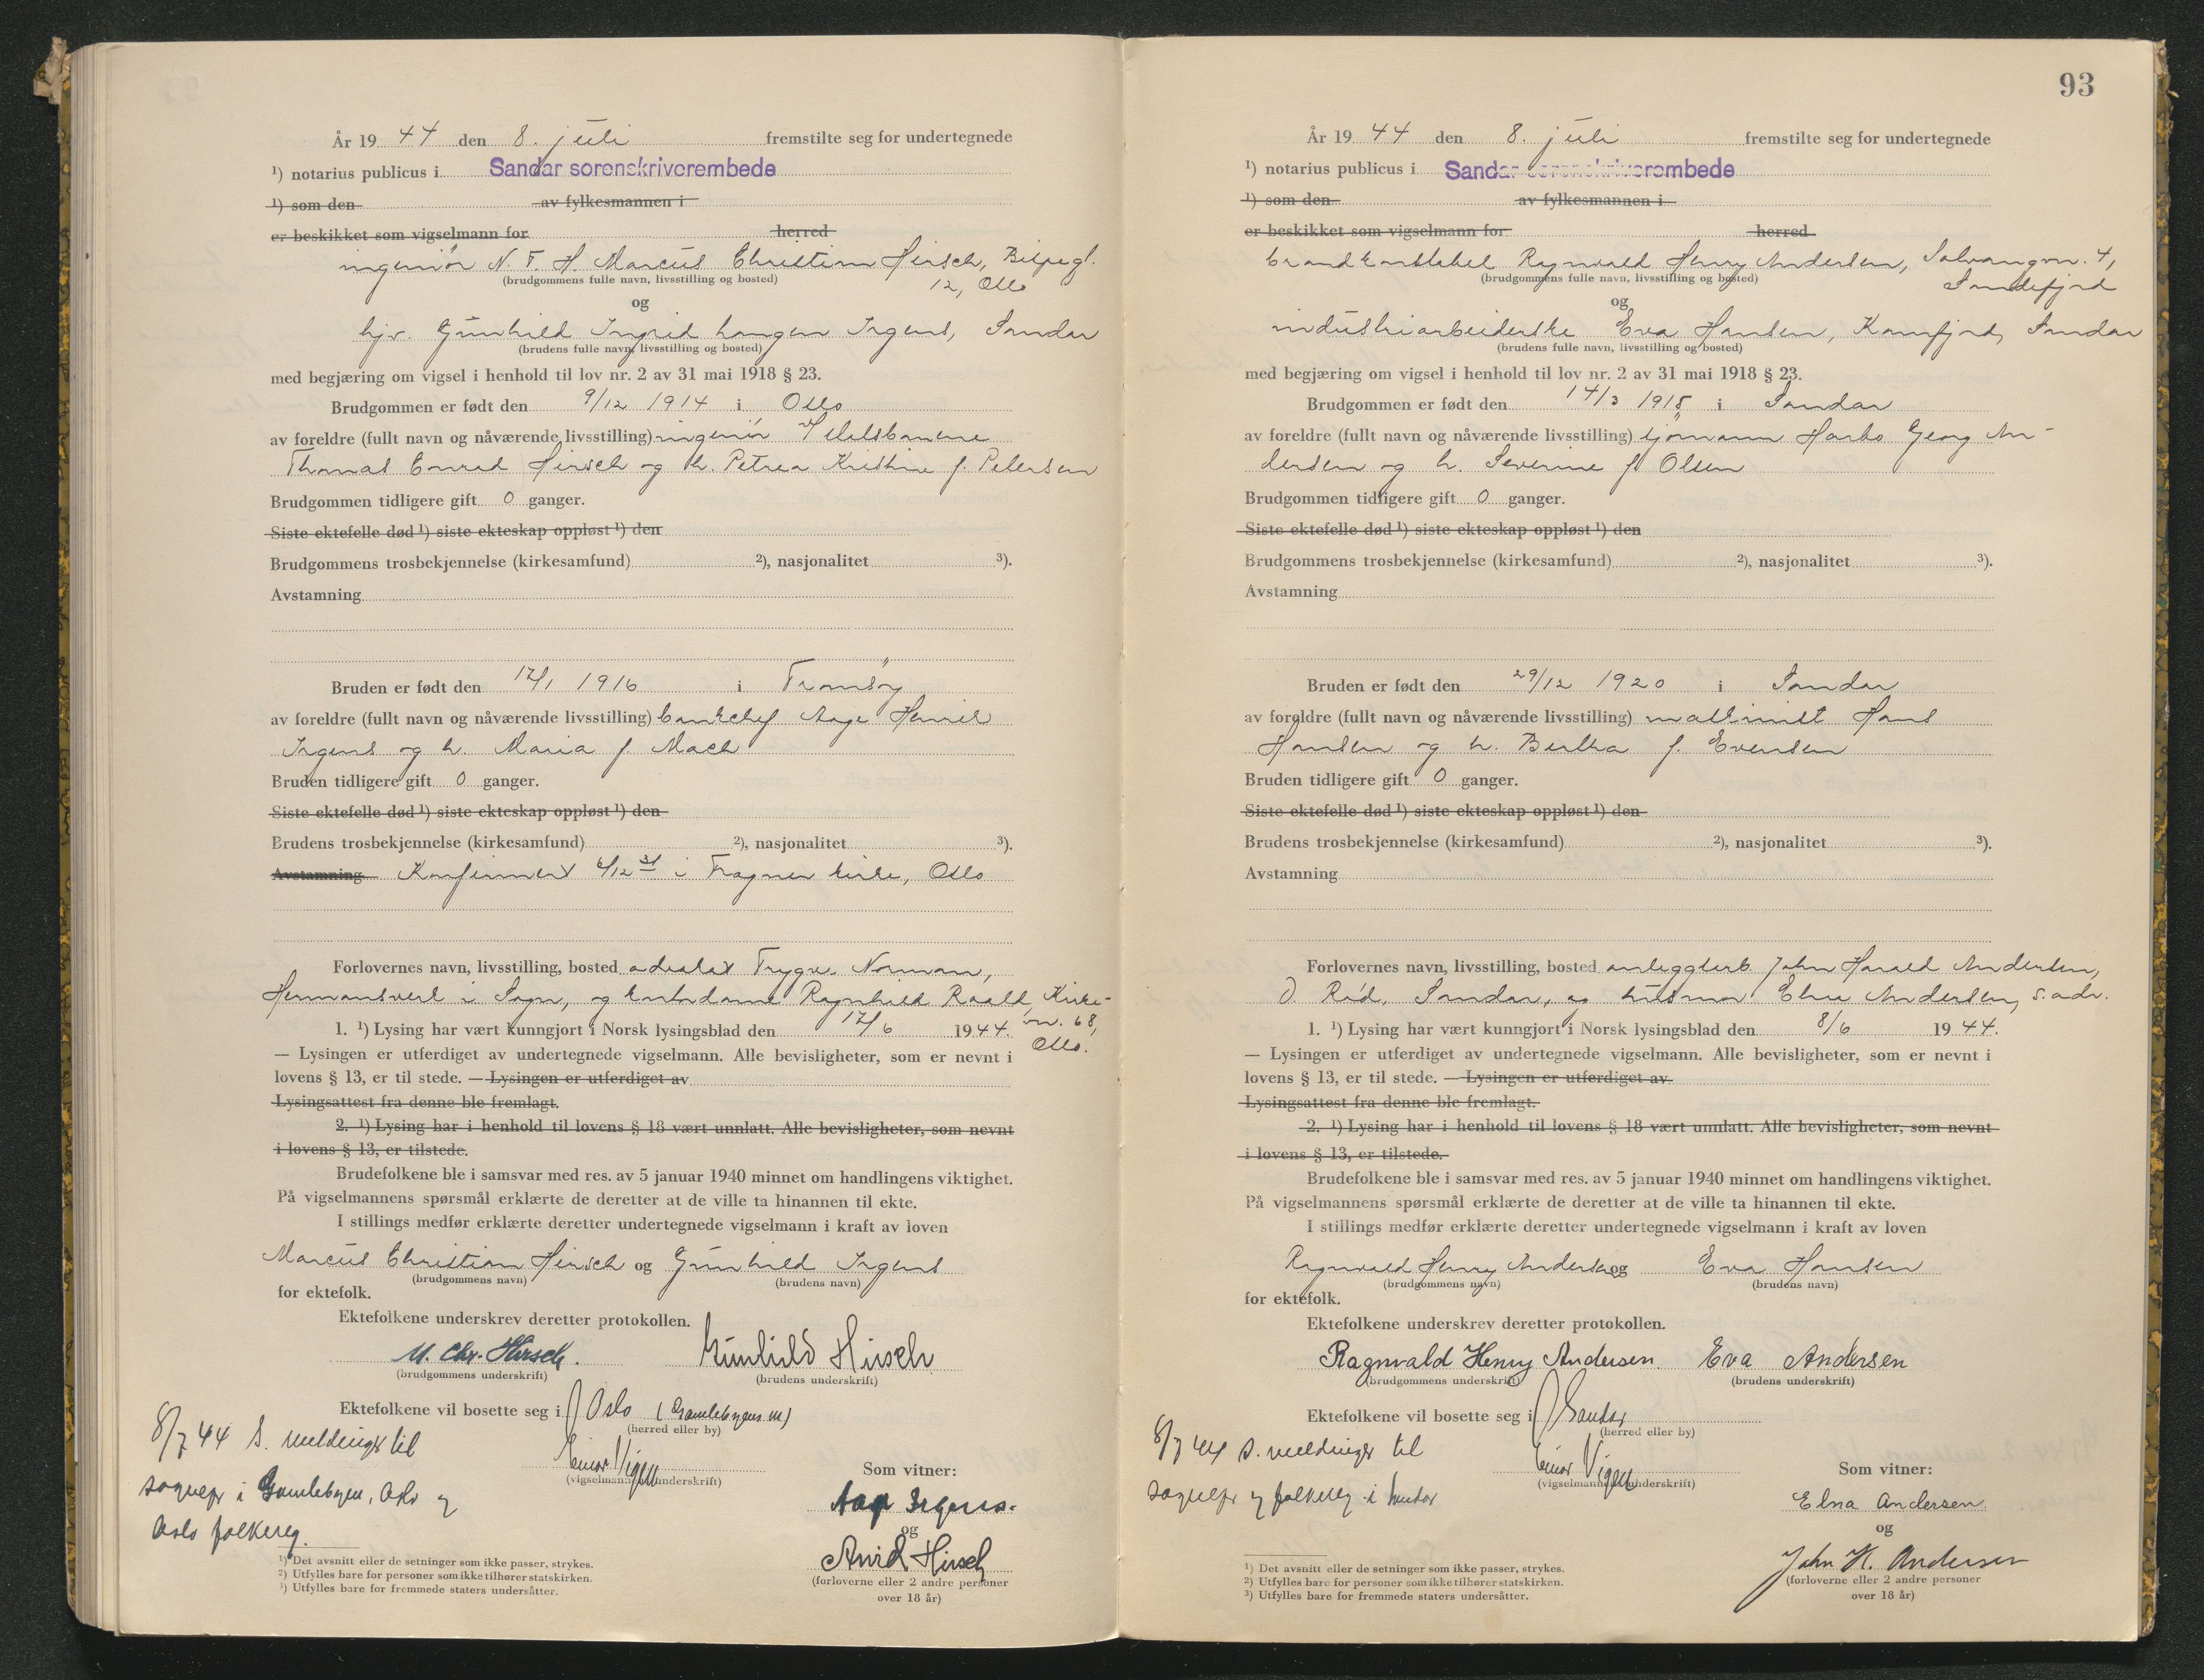 År 1944 den 8. juli fremstilte seg for undertegnede
¹) notarius publicus i Sandar sorenskriverembede
¹) som den av fylkesmannen i
er beskikket som vigselmann for herred
ingeniør N. T. H. Marcus Christian Hirsch, Bispegt.
(brudgommens fulle navn, livsstilling og bosted) 12, Oslo
og
hjv. Gunhild Ingrid Langen Irgens, Sandar
(brudens fulle navn, livsstilling og bosted)
med begjæring om vigsel i henhold til lov nr. 2 av 31 mai 1918 § 23.
Brudgommen er født den 9/12 1914 i Oslo
av foreldre (fullt navn og nåværende livsstilling) ingeniør v/Statsbanene
Thomas Conrad Hirsch og h. Petrea Kristine f. Petersen
Brudgommen tidligere gift 0 ganger.
Siste ektefelle død ¹) siste ekteskap oppløst ¹) den
Brudgommens trosbekjennelse (kirkesamfund) ²), nasjonalitet ³).
Avstamning
Bruden er født den 12/1 1916 i Tromsø
av foreldre (fullt navn og nåværende livsstilling) banksjef Aage Henrik
Irgens og h. Maria f. Mack
Bruden tidligere gift 0 ganger.
Siste ektefelle død ¹) siste ekteskap oppløst ¹) den
Brudens trosbekjennelse (kirkesamfund) ²), nasjonalitet ³).
Avstamning Konfirmert 6/12 31 i Frogner kirke, Oslo
Forlovernes navn, livsstilling, bosted advokat Trygve Norman,
Hermansverk i Sogn, og kontordame Ragnhild Roald, Kirke-
vn. 68,
Oslo.
1. ¹) Lysing har vært kunngjort i Norsk lysingsblad den 12/6 1944.
— Lysingen er utferdiget av undertegnede vigselmann. Alle bevisligheter, som er nevnt i
lovens § 13, er til stede. — Lysingen er utferdiget av
Lysingsattest fra denne ble fremlagt.
2. ¹) Lysing har i henhold til lovens § 18 vært unnlatt. Alle bevisligheter, som nevnt
i lovens § 13, er tilstede.
Brudefolkene ble i samsvar med res. av 5 januar 1940 minnet om handlingens viktighet.
På vigselmannens spørsmål erklærte de deretter at de ville ta hinannen til ekte.
I stillings medfør erklærte deretter undertegnede vigselmann i kraft av loven
Marcus Christian Hirsch og Gunhild Irgens
(brudgommens navn) (brudens navn)
for ektefolk.
Ektefolkene underskrev deretter protokollen.
M. Chr. Hirsch. Gunhild Hirsch
(brudgommens underskrift) (brudens underskrift)
Ektefolkene vil bosette seg i Oslo (Gamlebyens m)
(herred eller by)
8/7 44 s. meldinger til
sognepr i Gamlebyen, Oslo og
Oslo folkereg.
Einar Vigen
(vigselmannens underskrift)
Som vitner:
Aage Irgens.
og
Arvid Hirsch
(forloverne eller 2 andre personer
over 18 år)
¹) Det avsnitt eller de setninger som ikke passer, strykes.
²) Utfylles bare for personer som ikke tilhører statskirken.
³) Utfylles bare for fremmede staters undersåtter.
93
År 1944 den 8. juli fremstilte seg for undertegnede
¹) notarius publicus i Sandar sorenskriverembede
¹) som den av fylkesmannen i
er beskikket som vigselmann for herred
brandkonstabel Ragnvald Henry Andersen, Solvangvn. 4,
(brudgommens fulle navn, livsstilling og bosted) Sandefjord
og
industriarbeiderske Eva Hansen, Kamfjord, Sandar
(brudens fulle navn, livsstilling og bosted)
med begjæring om vigsel i henhold til lov nr. 2 av 31 mai 1918 § 23.
Brudgommen er født den 14/3 1918 i Sandar
av foreldre (fullt navn og nåværende livsstilling) sjømann Harbo Georg An-
dersen og h. Severine f. Olsen
Brudgommen tidligere gift 0 ganger.
Siste ektefelle død ¹) siste ekteskap oppløst ¹) den
Brudgommens trosbekjennelse (kirkesamfund) ²), nasjonalitet ³).
Avstamning
Bruden er født den 29/12 1920 i Sandar
av foreldre (fullt navn og nåværende livsstilling) maskinist Hans
Hansen og h. Bertha f. Evensen
Bruden tidligere gift 0 ganger.
Siste ektefelle død ¹) siste ekteskap oppløst ¹) den
Brudens trosbekjennelse (kirkesamfund) ²), nasjonalitet ³).
Avstamning
Forlovernes navn, livsstilling, bosted anleggsarb. John Harald Andersen,
Ø. Rød, Sandar, og husmor Elna Andersen, s. adr.
1. ¹) Lysing har vært kunngjort i Norsk lysingsblad den 8/6 1944.
— Lysingen er utferdiget av undertegnede vigselmann. Alle bevisligheter, som er nevnt i
lovens § 13, er til stede. — Lysingen er utferdiget av
Lysingsattest fra denne ble fremlagt.
2. ¹) Lysing har i henhold til lovens § 18 vært unnlatt. Alle bevisligheter, som nevnt
i lovens § 13, er tilstede.
Brudefolkene ble i samsvar med res. av 5 januar 1940 minnet om handlingens viktighet.
På vigselmannens spørsmål erklærte de deretter at de ville ta hinannen til ekte.
I stillings medfør erklærte deretter undertegnede vigselmann i kraft av loven
Ragnvald Henry Andersen og Eva Hansen
(brudgommens navn) (brudens navn)
for ektefolk.
Ektefolkene underskrev deretter protokollen.
Ragnvald Henry Andersen. Eva Andersen
(brudgommens underskrift) (brudens underskrift)
Ektefolkene vil bosette seg i Sandar
(herred eller by)
8/7 44 s. meldinger til
sognepr og folkereg. i Sandar
Einar Vigen
(vigselmannens underskrift)
Som vitner:
Elna Andersen
og
John H. Andersen
(forloverne eller 2 andre personer
over 18 år)
¹) Det avsnitt eller de setninger som ikke passer, strykes.
²) Utfylles bare for personer som ikke tilhører statskirken.
³) Utfylles bare for fremmede staters undersåtter.